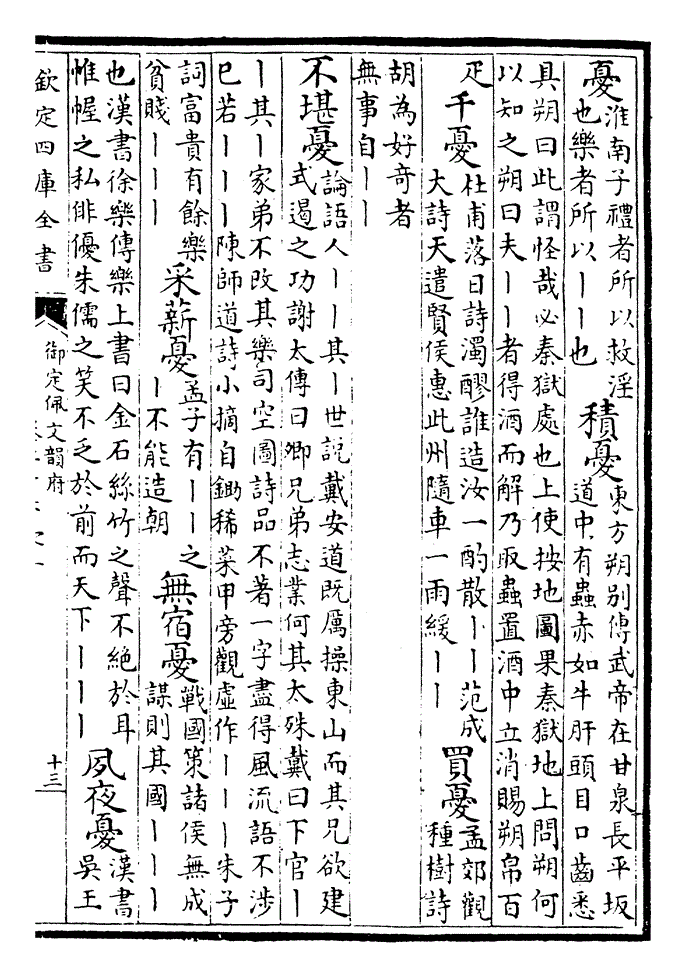 憂淮南子禮者所以救淫
也樂者所以丨丨也
積憂東方朔別傳武帝在甘泉長平坂
道中有蟲赤如牛肝頭目口齒悉
具朔曰此謂怪哉必秦獄處也上使按地圖果秦獄地上問朔何
以知之朔曰夫丨丨者得酒而解乃取蟲置酒中立消賜朔帛百
疋
千憂杜甫落日詩濁醪誰造汝一酌散丨丨范成
大詩天遣賢侯惠此州隨車一雨緩丨丨
買憂孟郊觀
種樹詩
胡為好奇者
無事自丨丨
不堪憂論語人丨丨其丨世説戴安道既厲操東山而其兄欲建
式遏之功謝太傅曰卿兄弟志業何其太殊戴曰下官丨
丨其丨家弟不改其樂司空圖詩品不著一字盡得風流語不涉
已若丨丨丨陳師道詩小摘自鋤稀菜甲旁觀虛作丨丨丨朱子
詞富貴有餘樂
貧賤丨丨丨
采薪憂孟子有丨丨之
丨不能造朝
無宿憂戰國策諸侯無成
謀則其國丨丨丨
也漢書徐樂傳樂上書曰金石絲竹之聲不絶於耳
帷幄之私俳優朱儒之笑不乏於前而天下丨丨丨
夙夜憂漢書
吳王
欽定四庫全書
御定佩文韻府
十三